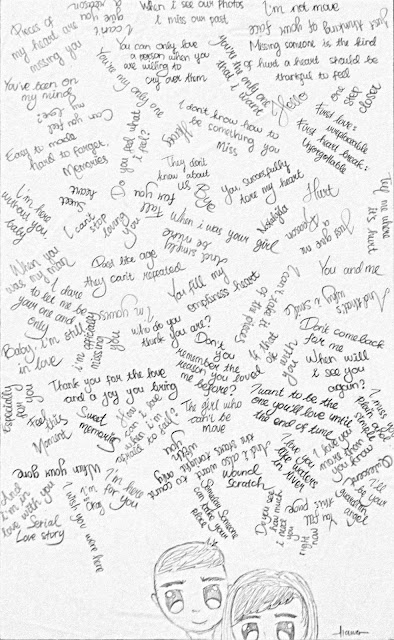 Pieces of
my heart are
missing you
I can't
give you
a reason
When I see our photos
I miss our past
I'm not move
Just thinking of your face
You can only love
a person when you
are willing to
cry over them
You're my only one
You're the only one
that I want
Missing someone is the kind
of hurd a heart should be
thankful to feel
Hello
one
step
closer
You've been on
my mind
Can you feel
my love?
Do you feel what
I feel?
I don't know how to
be something you
miss
First love:
irreplaceable
First heart break:
Unforgettable
Easy to made
hard to forget,
Memories
They don't
know about
us
Bye
You, successfully
tore my heart
Hurt
Tell me where
it's hurt
I'm here
without you
baby
Sweet
heart
I can't
stop
loving
you
Fall
for you
When I was your girl
Nostalgia
Just give me
a Reason
When you
was my man
I dare
to let me be
your one and
only
Past like age
they can't repeated
You fill my
emptiness heart
You and me
I'm yours
who do you
think you are?
I'm especially
missing
you
Baby, I'm still
in love
Don't
you
remember the
reason you loved
me before?
Is that ok
with
you
Don't comeback
for me
When will
I see you
again?
Especially
for you
Thank you for the love
and a joy you bring
Feel this
Moment
Sweet
memories
How
can I love
when I'm
afraid to fall?
The girl who
can't be
move
I want to be the
one you'll love until
the end of time
I miss you
pain and
simple
I love you
like waters
in river
I love you
more than
you know
When you're gone
I'm here
I'm for you
Okay
And I also want to count
the stars with
you
wound
scratch
I'll be
your
guardian
angel
I'm in
love with you
Serial
Love story
I wish you were here
Someday someone
can take your
place
Do you see
how much
I need
you
right
now